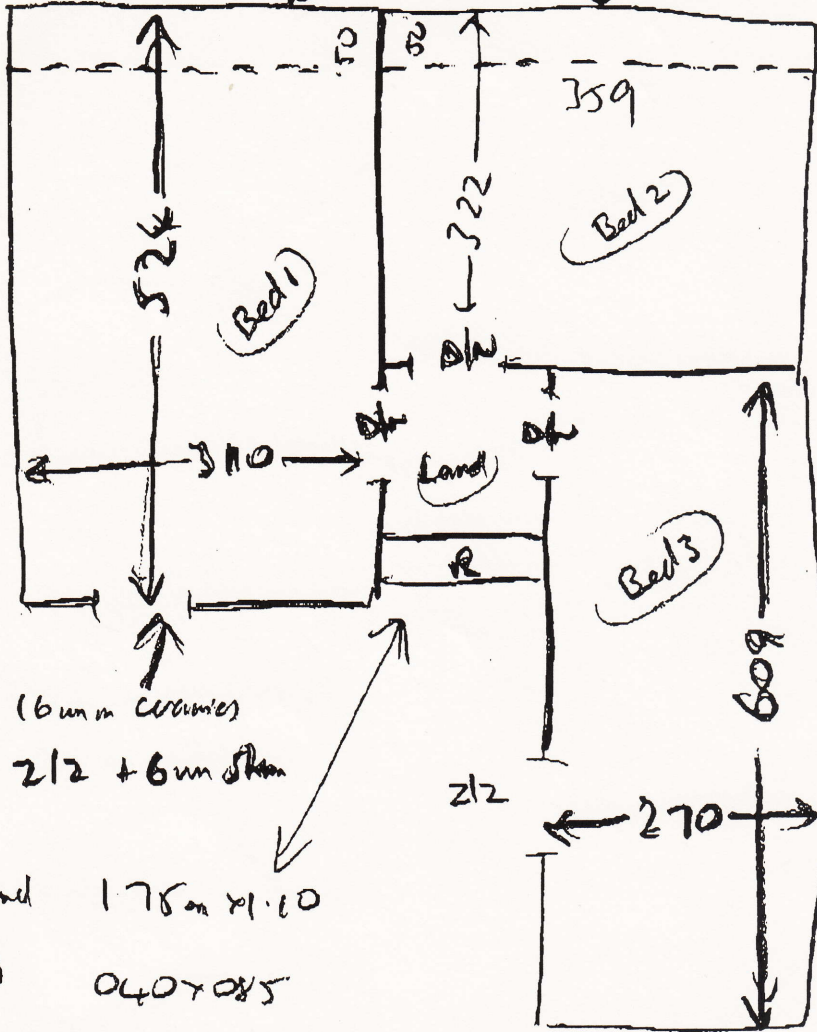 50 50
359
322
Bed 2
524
Bed 1
D/W
D/W D/W
310
Land
R
Bed 3
16mm Ceramics
609
Z/Z + 6mm
Z/Z
270
1.75m x 1.10
040 x 085